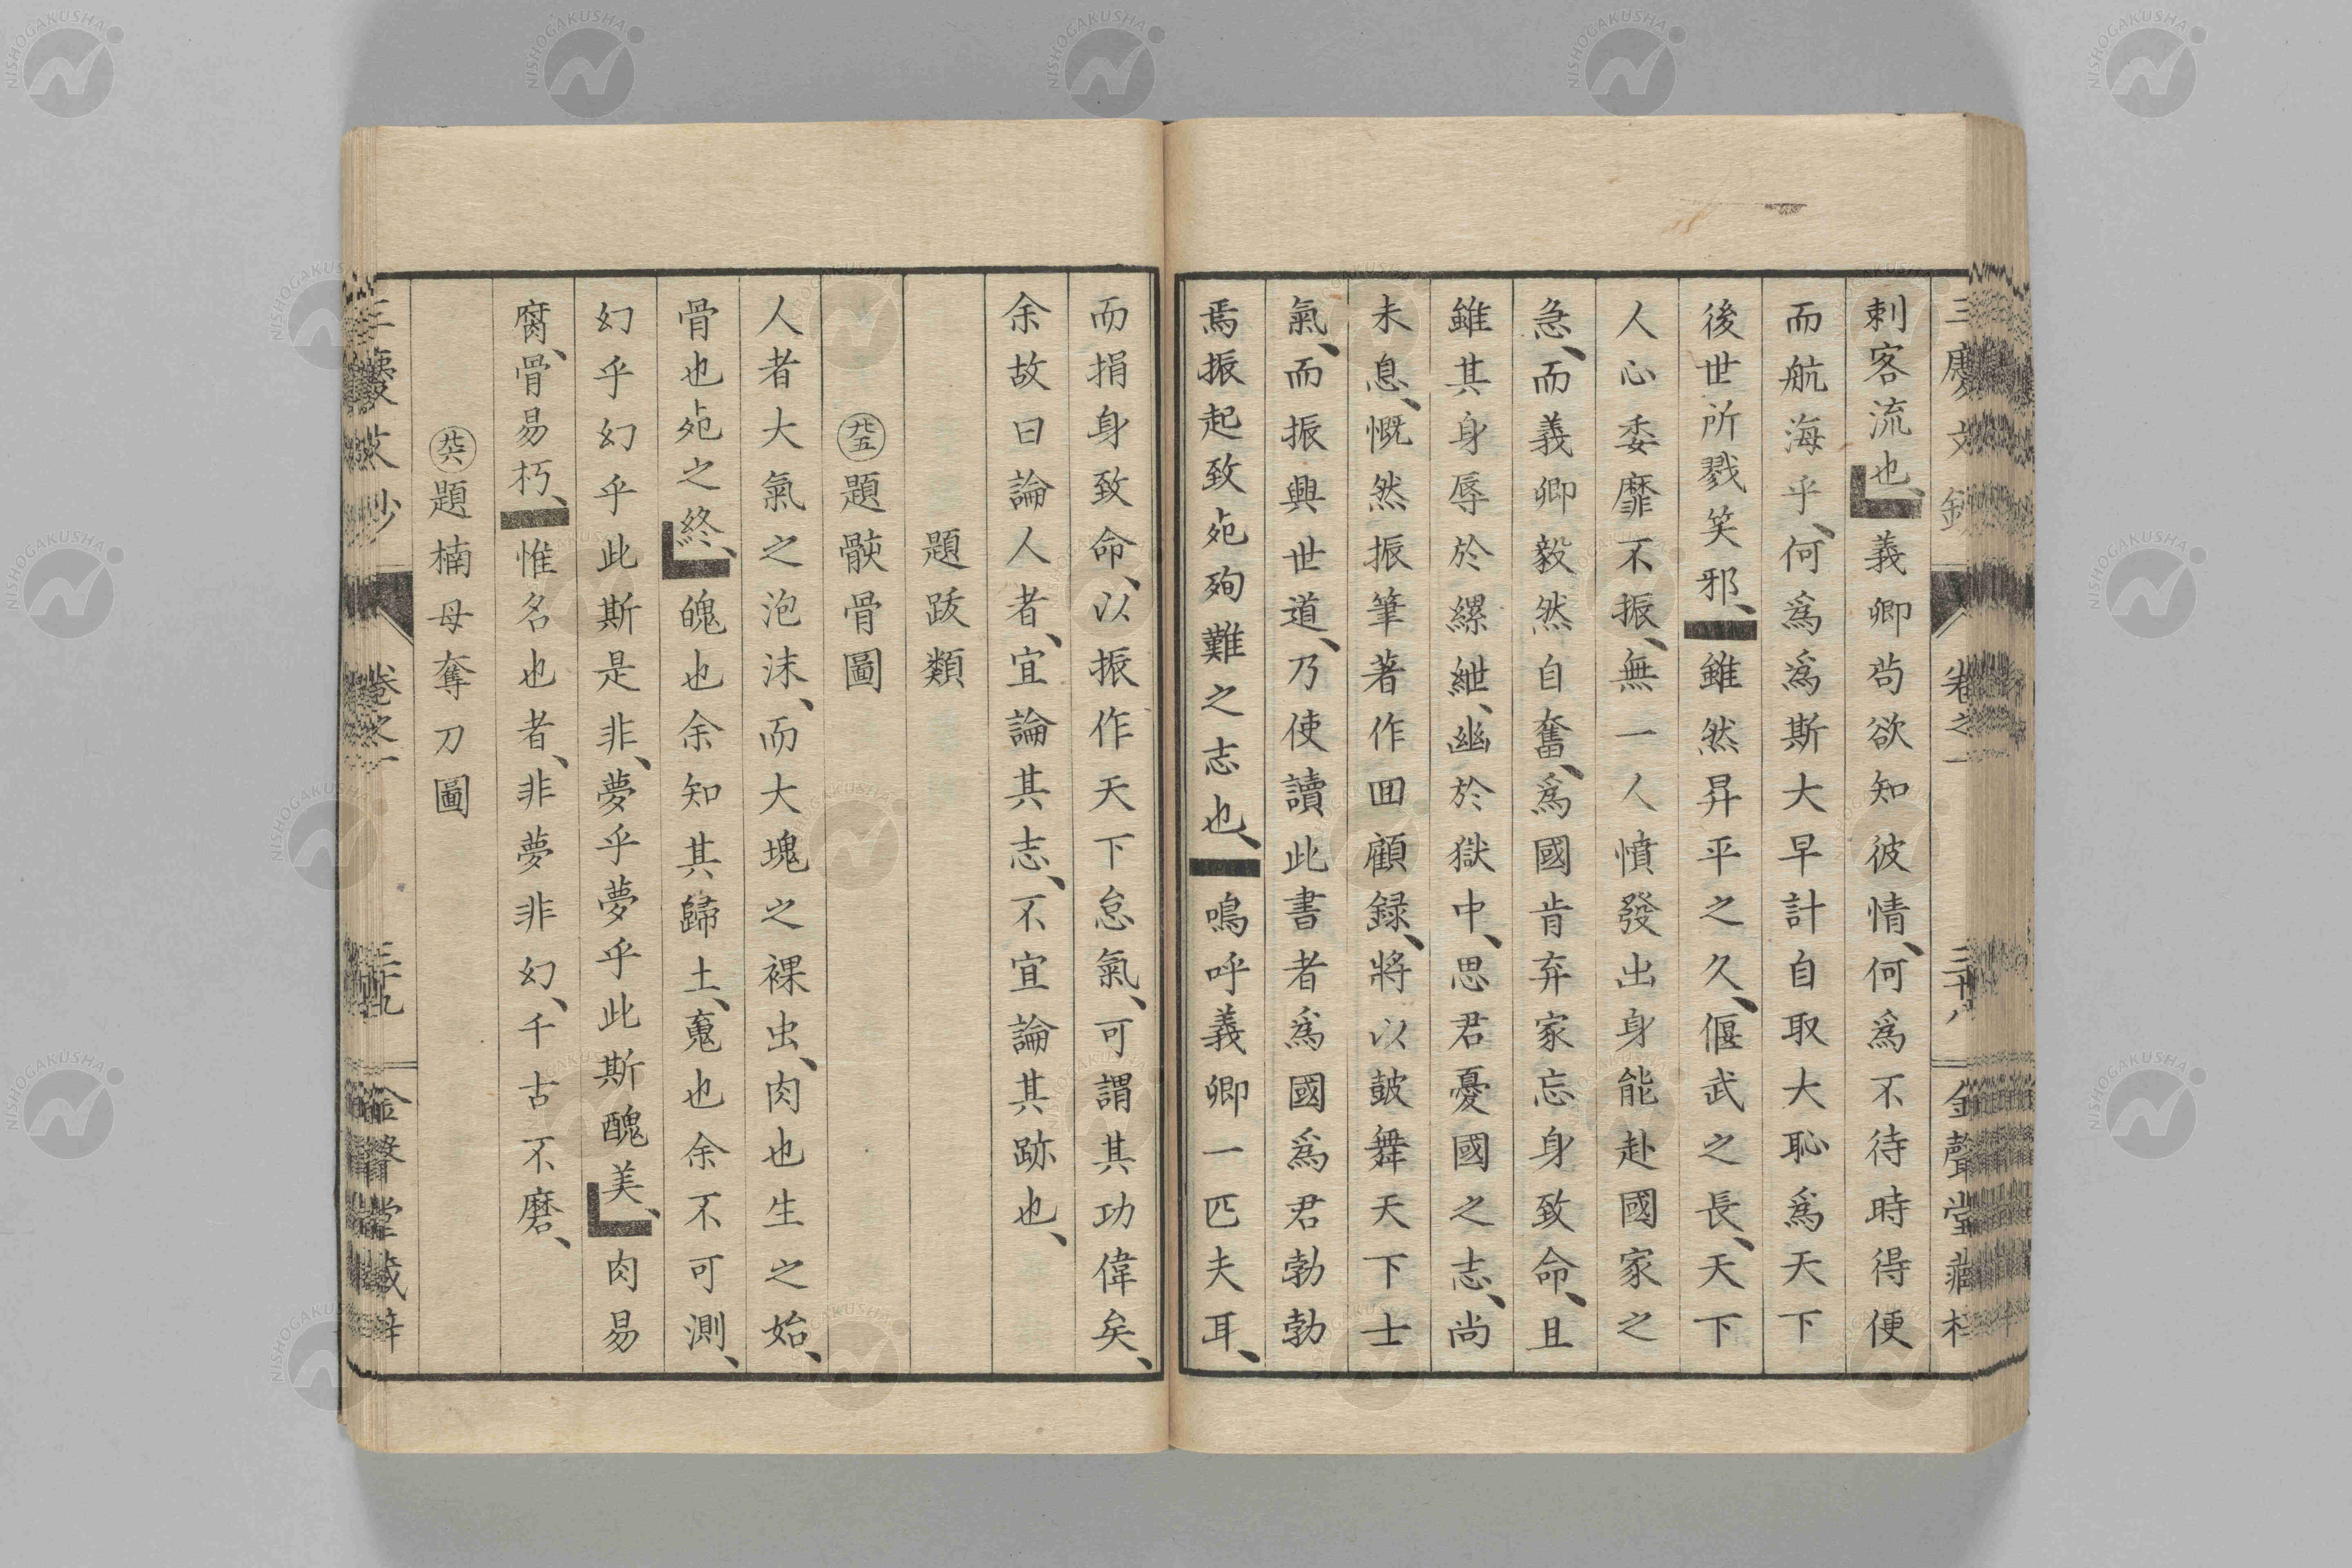 三慶文鈔 卷之一 三十八 金聲堂藏梓
刺客流也、義卿苟欲知彼情、何爲不待時得便
而航海乎、何爲爲斯大早計自取大恥爲天下
後世所戮笑邪、雖然昇平之久、偃武之長、天下
人心委靡不振、無一人憤發出身能赴國家之
急、而義卿毅然自奮、爲國肯弃家忘身致命、且
雖其身辱於縲紲、幽於獄中、思君憂國之志、尚
未息、慨然振筆著作囬顧録、將以鼓舞天下士
氣、而振興世道、乃使讀此書者爲國爲君勃勃
焉振起致死殉難之志也、鳴呼義卿一匹夫耳、
而捐身致命、以振作天下怠氣、可謂其功偉矣、
余故曰論人者、宜論其志、不宜論其跡也、
題跋類
九十五題骸骨圖
人者大氣之泡沫、而大塊之裸虫、肉也生之始、
骨也死之終、魄也余知其歸土、䰟也余不可測、
幻乎幻乎此斯是非、夢乎夢乎此斯醜美、肉易
腐、骨易朽、惟名也者、非夢非幻、千古不磨、
九十六題楠母奪刀圖
三慶文鈔 卷之一 三十九 金聲堂藏梓
NISHOGAKUSHA